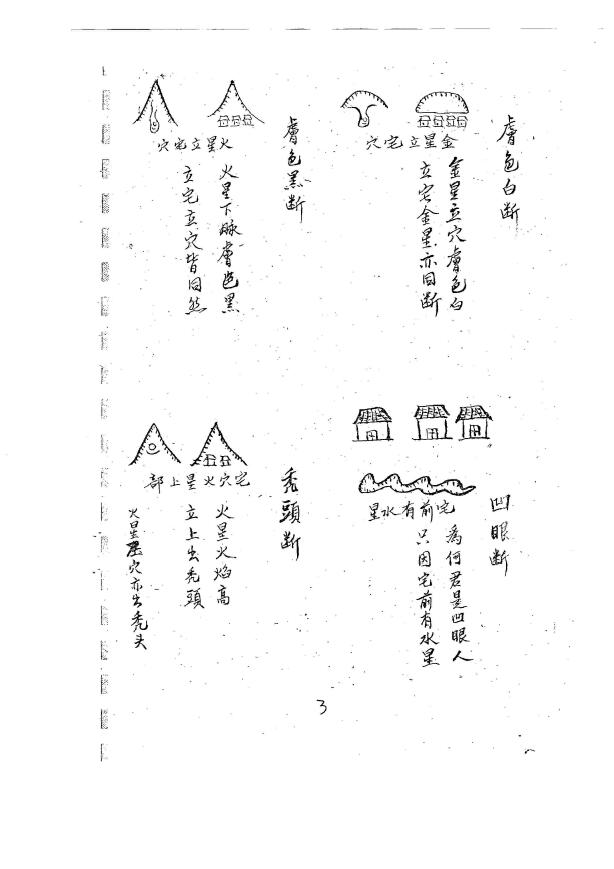 膚色白断
金星立宅穴
金星立穴膚色白
立宅金星亦同断
膚色黑断
火星立宅穴
火星下脉膚色黑
立宅立穴皆同然
凹眼断
宅前有水星
為何君是凹眼人
只因宅前有水星
秃頭断
宅穴火星上部
火星火焰高
立上出秃頭
火星穴亦出秃头
3